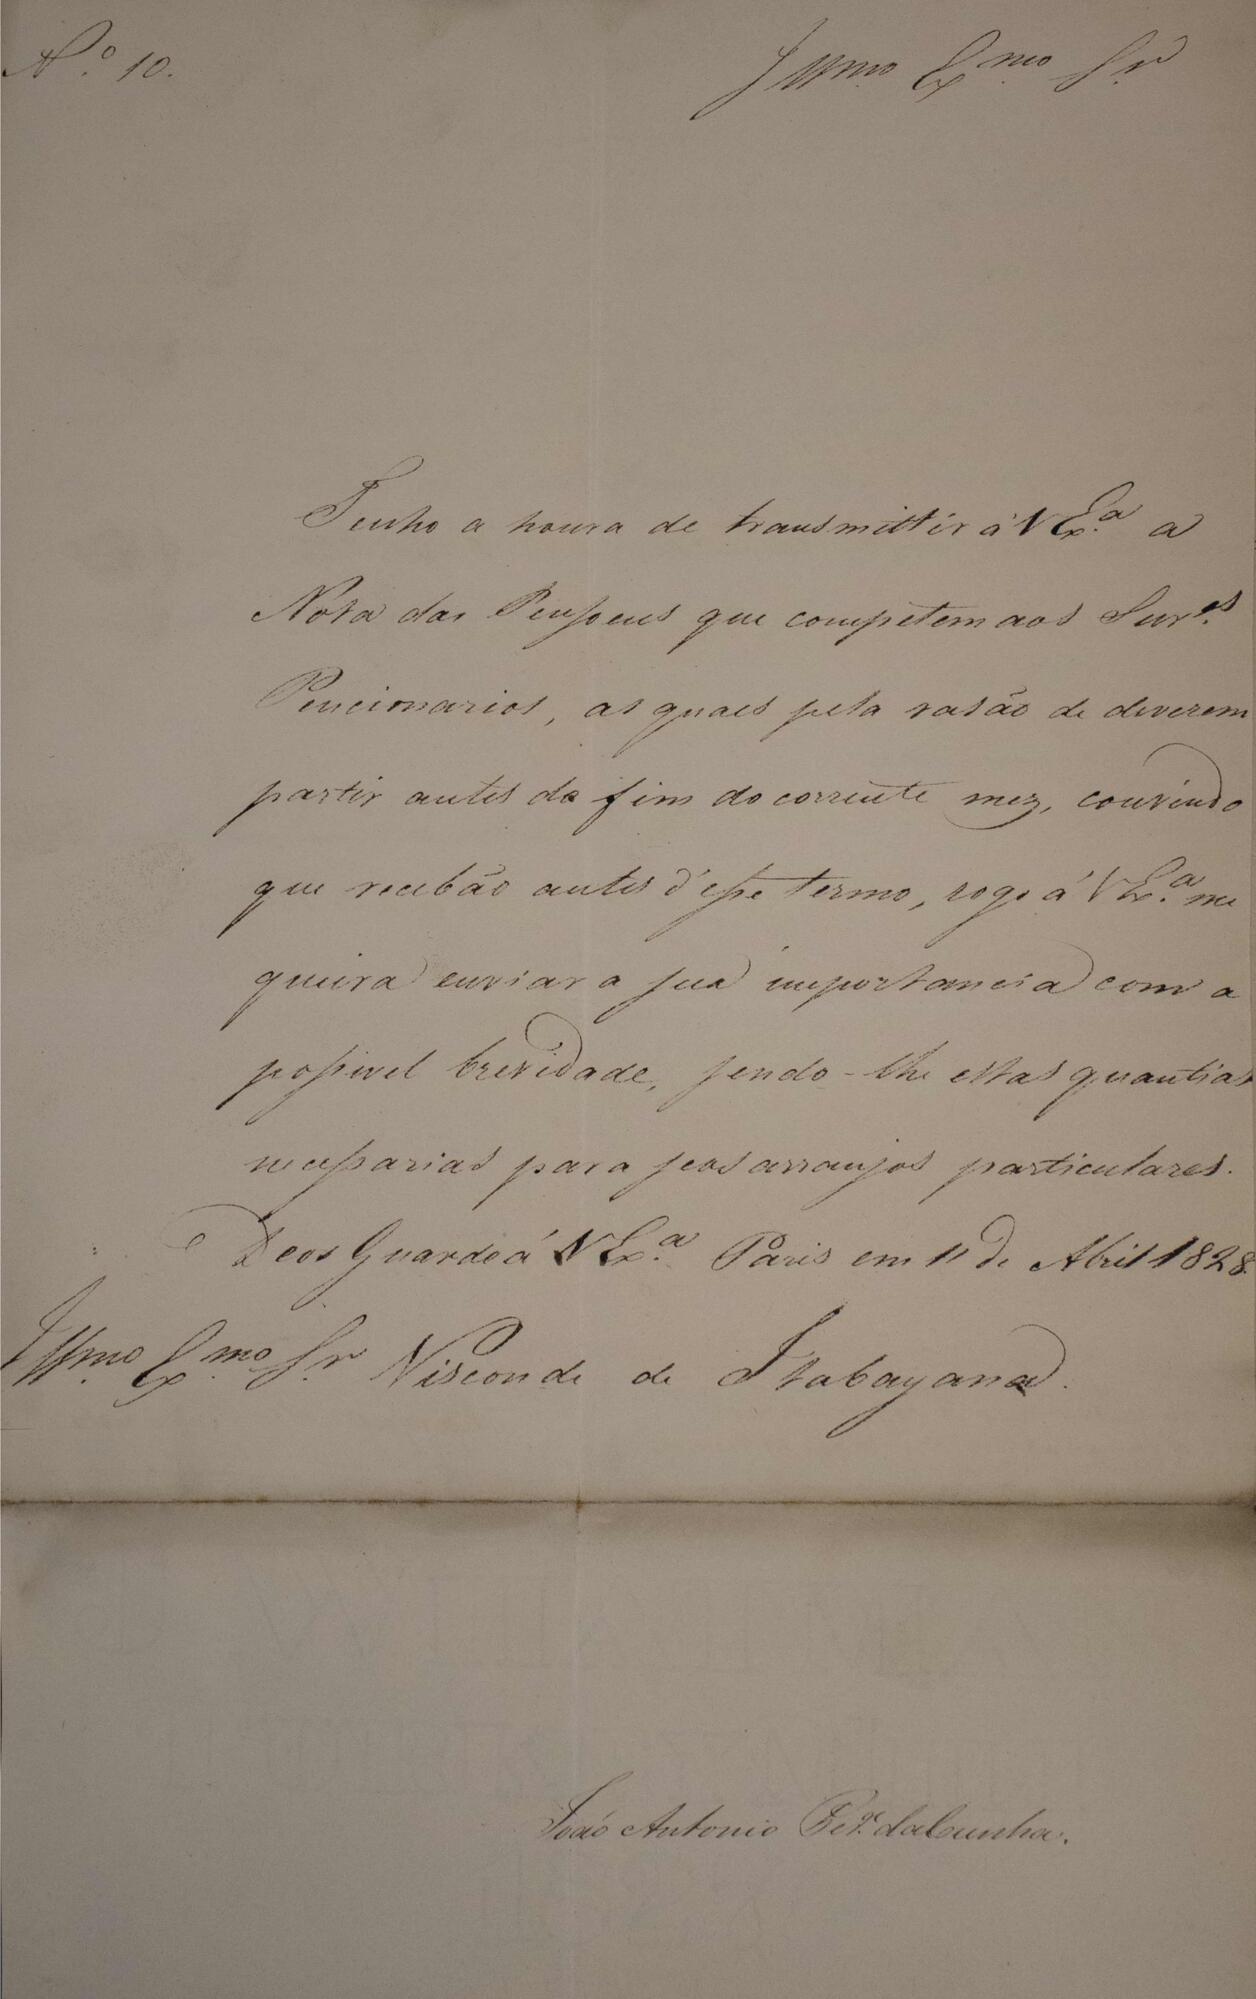 N.º 10.
Illmo. Exmo. Sr.
Tenho a honra de transmittir á V Ex.ª a
Nota das Pensoens que competem aos Snr.es
Pencionarios, as quaes pela rasão de deverem
partir antes do fim do corrente mez, convindo
que recebão antes d'esse termo, rogo á V Ex.ª me
queira enviar a sua importancia com a
possivel brevidade, sendo-lhe estas quantias
necessarias para seos arranjos particulares.
Deos Guarde á V Ex.ª Paris em 11 de Abril 1828.
Illmo. Exmo. Sr. Visconde de Itabayana.
João Antonio Per.ª da Cunha.